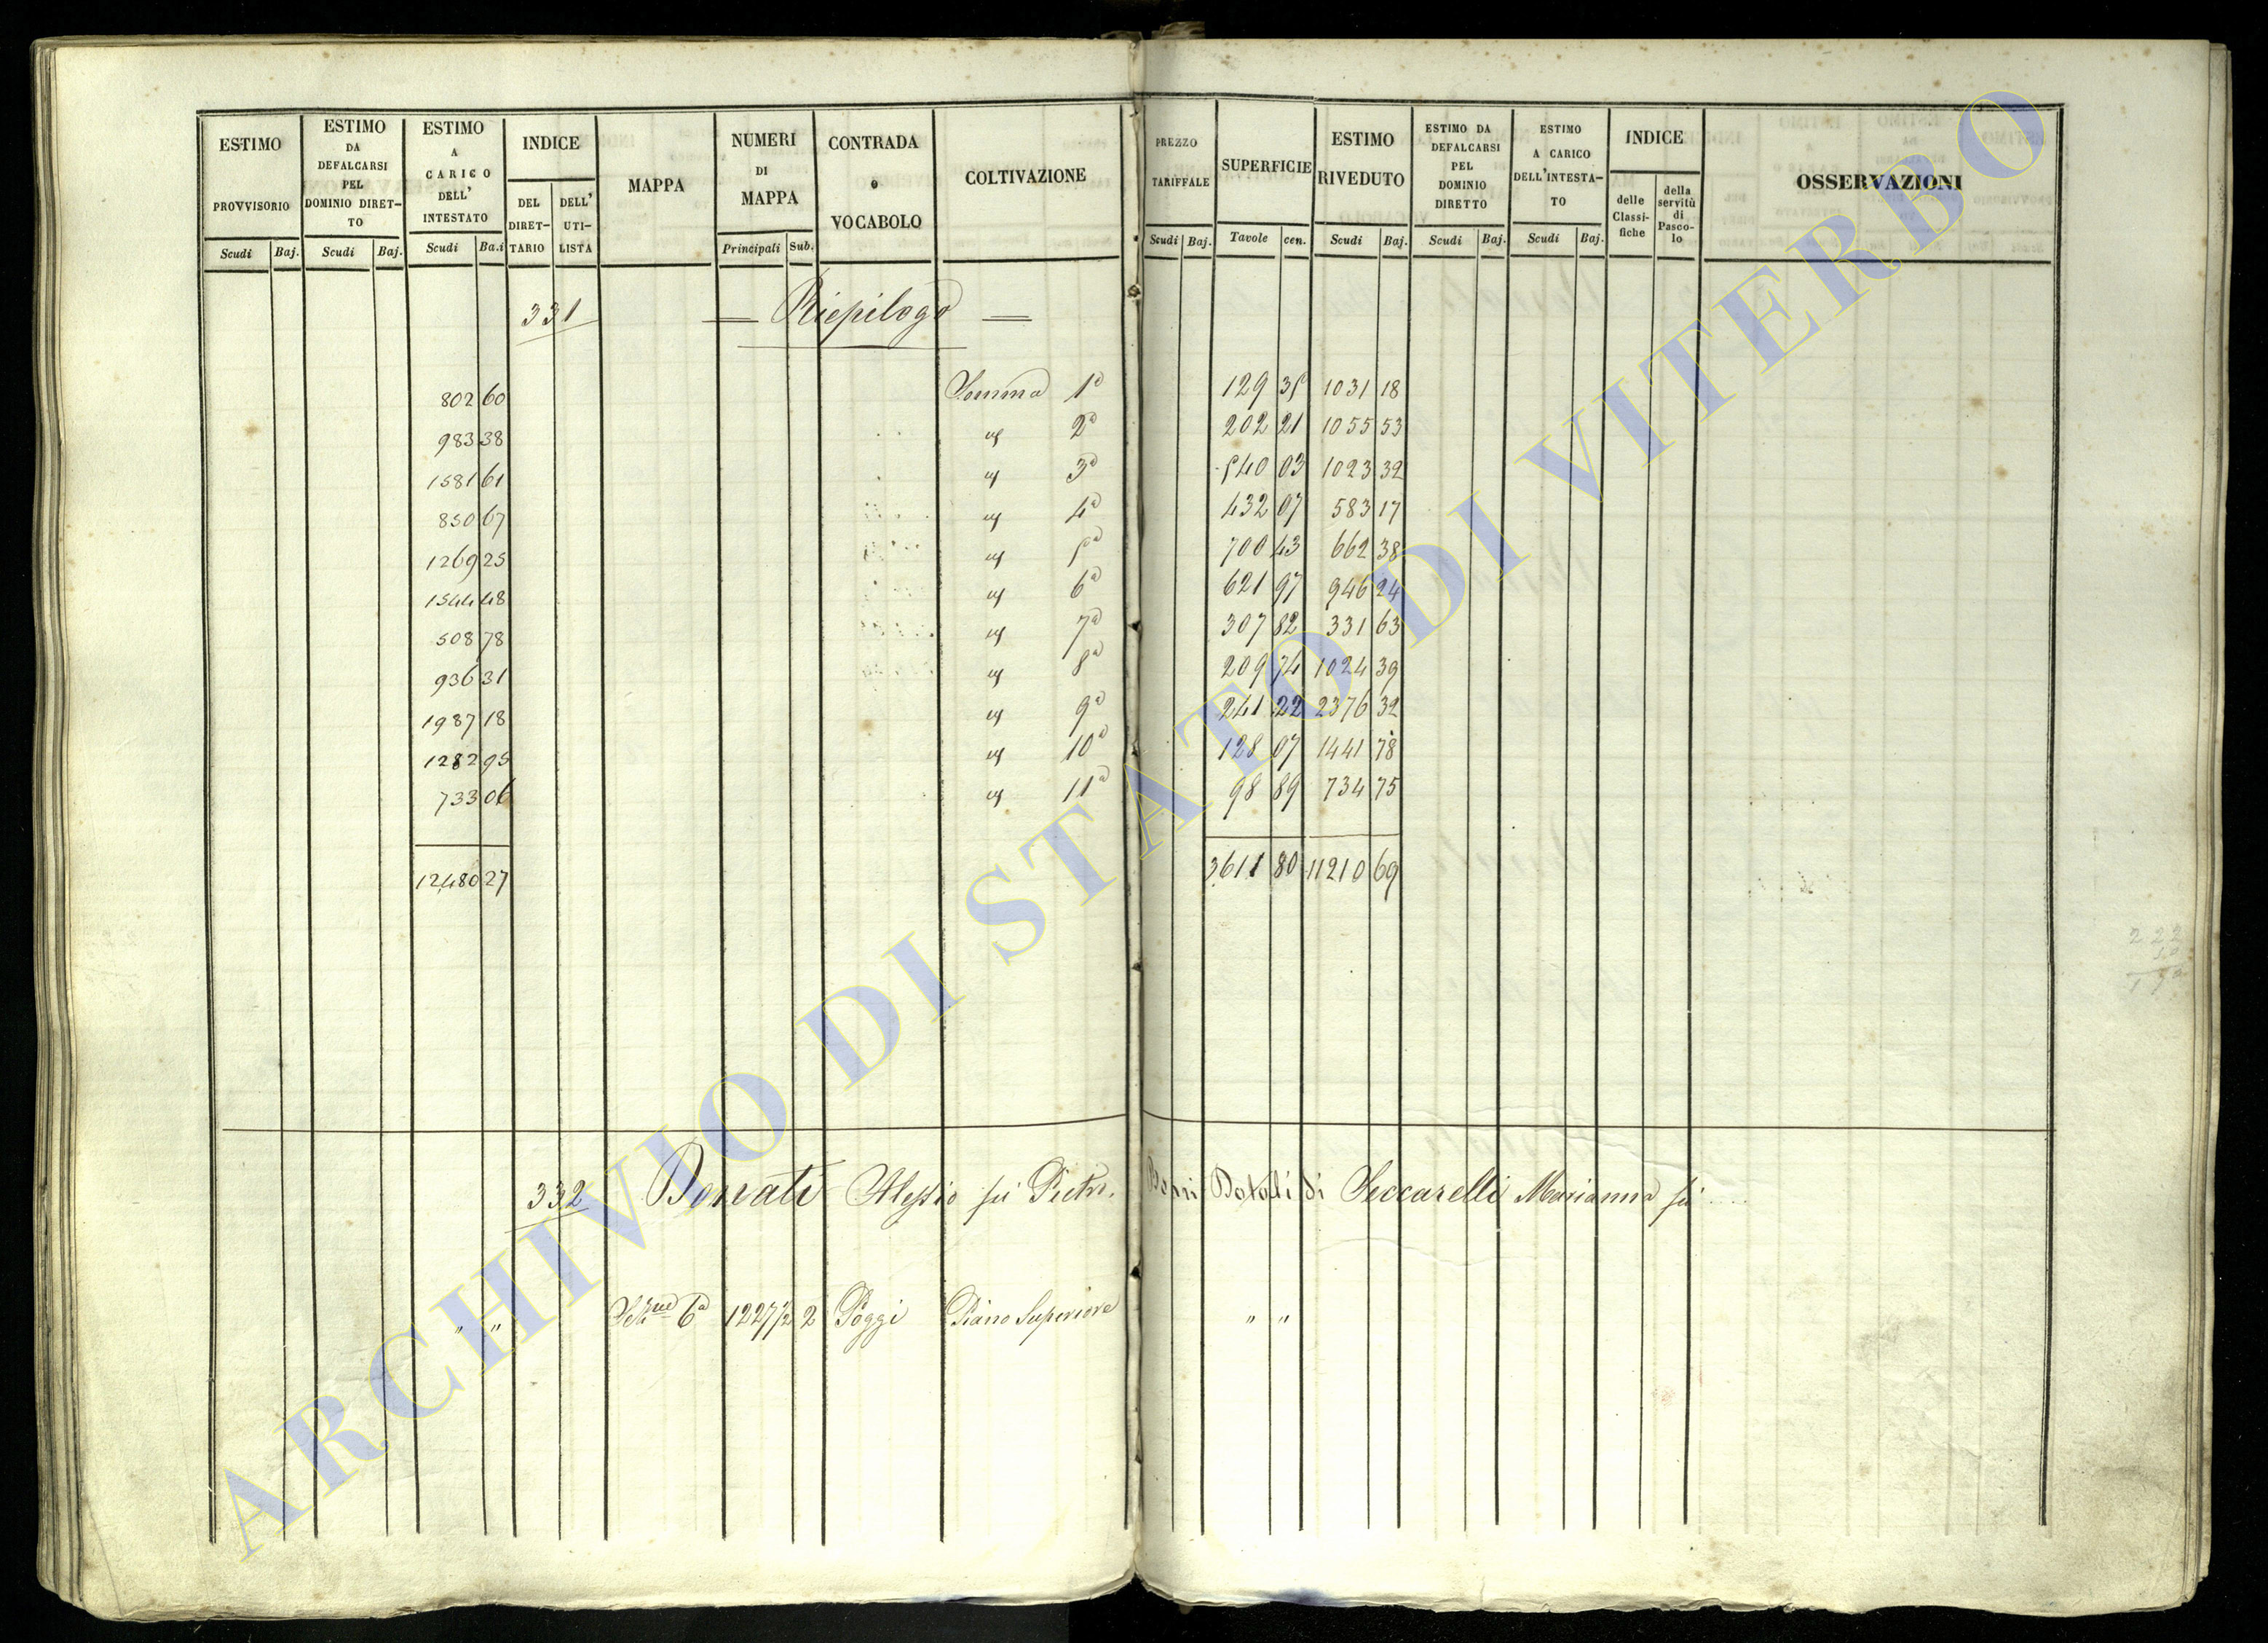 ESTIMO PROVVISORIO Scudi Baj.
ESTIMO DA DEFALCARSI PEL DOMINIO DIRET-TO Scudi Baj.
ESTIMO A CARICO DELL' INTESTATO Scudi Ba.i
INDICE DEL DIRET-TARIO DELL' UTI-LISTA
MAPPA
NUMERI DI MAPPA Principali Sub.
CONTRADA o VOCABOLO
COLTIVAZIONE
PREZZO TARIFFALE Scudi Baj.
SUPERFICIE Tavole cen.
ESTIMO RIVEDUTO Scudi Baj.
ESTIMO DA DEFALCARSI PEL DOMINIO DIRETTO Scudi Baj.
ESTIMO A CARICO DELL'INTESTA-TO Scudi Baj.
INDICE delle Classi-fiche della servitù di Pasco-lo
OSSERVAZIONI
331 Riepilogo
802 60 Somma 1a 129 35 1031 18
983 38 " 2a 202 21 1055 53
1581 61 " 3a 540 03 1023 32
850 67 " 4a 432 07 583 17
1269 25 " 5a 700 43 662 38
1544 48 " 6a 621 97 946 24
508 78 " 7a 307 82 331 63
936 31 " 8a 209 74 1024 39
1987 18 " 9a 241 22 2376 32
1282 95 " 10a 128 07 1441 78
733 06 " 11a 98 89 734 75
12480 27 3611 80 11210 69
332 Donati Alessio fu Pietro. Beni Dotali di Seccarelli Marianna fu ....
" " 6a 1227/2 2 Poggi Piano Superiore " "
222
ARCHIVIO DI STATO DI VITERBO